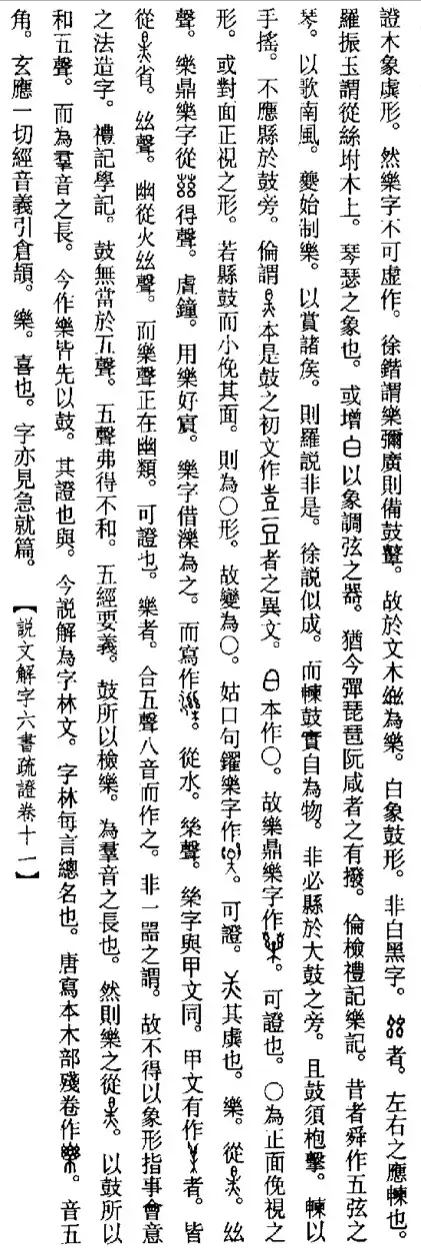 證木象虡形。然樂字不可虛作。徐鍇謂樂彌廣則備鼓鼙。故於文木𢆶為樂。白象鼓形。非白黑字。者。左右之應朄也。
羅振玉謂從絲坿木上。琴瑟之象也。或增白以象調弦之器。猶今彈琵琶阮咸者之有撥。倫檢禮記樂記。昔者舜作五弦之
琴。以歌南風。夔始制樂。以賞諸矦。則羅說非是。徐說似成。而朄鼓實自為物。非必縣於大鼓之旁。且鼓須枹擊。朄以
手搖。不應縣於鼓旁。倫謂本是鼓之初文作壴豆者之異文。白本作〇。故樂鼎樂字作。可證也。〇為正面俛視之
形。或對面正視之形。若縣鼓而小俛其面。則為〇形。故變為〇。姑口句鑃樂字作。可證。其虡也。樂。從。𢆶
聲。樂鼎樂字從得聲。虘鐘。用樂好㝨。樂字借濼為之。而寫作。從水。㯱聲。㯱字與甲文同。甲文有作者。皆
從省。𢆶聲。幽從火𢆶聲。而樂聲正在幽類。可證也。樂者。合五聲八音而作之。非一噐之謂。故不得以象形指事會意
之法造字。禮記學記。鼓無當於五聲。五聲弗得不和。五經要義。鼓所以檢樂。為羣音之長也。然則樂之從。以鼓所以
和五聲。而為羣音之長。今作樂皆先以鼓。其證也與。今說解為字林文。字林每言總名也。唐寫本木部殘卷作。音五
角。玄應一切經音義引倉頡。樂。喜也。字亦見急就篇。【説文解字六書疏證卷十一】